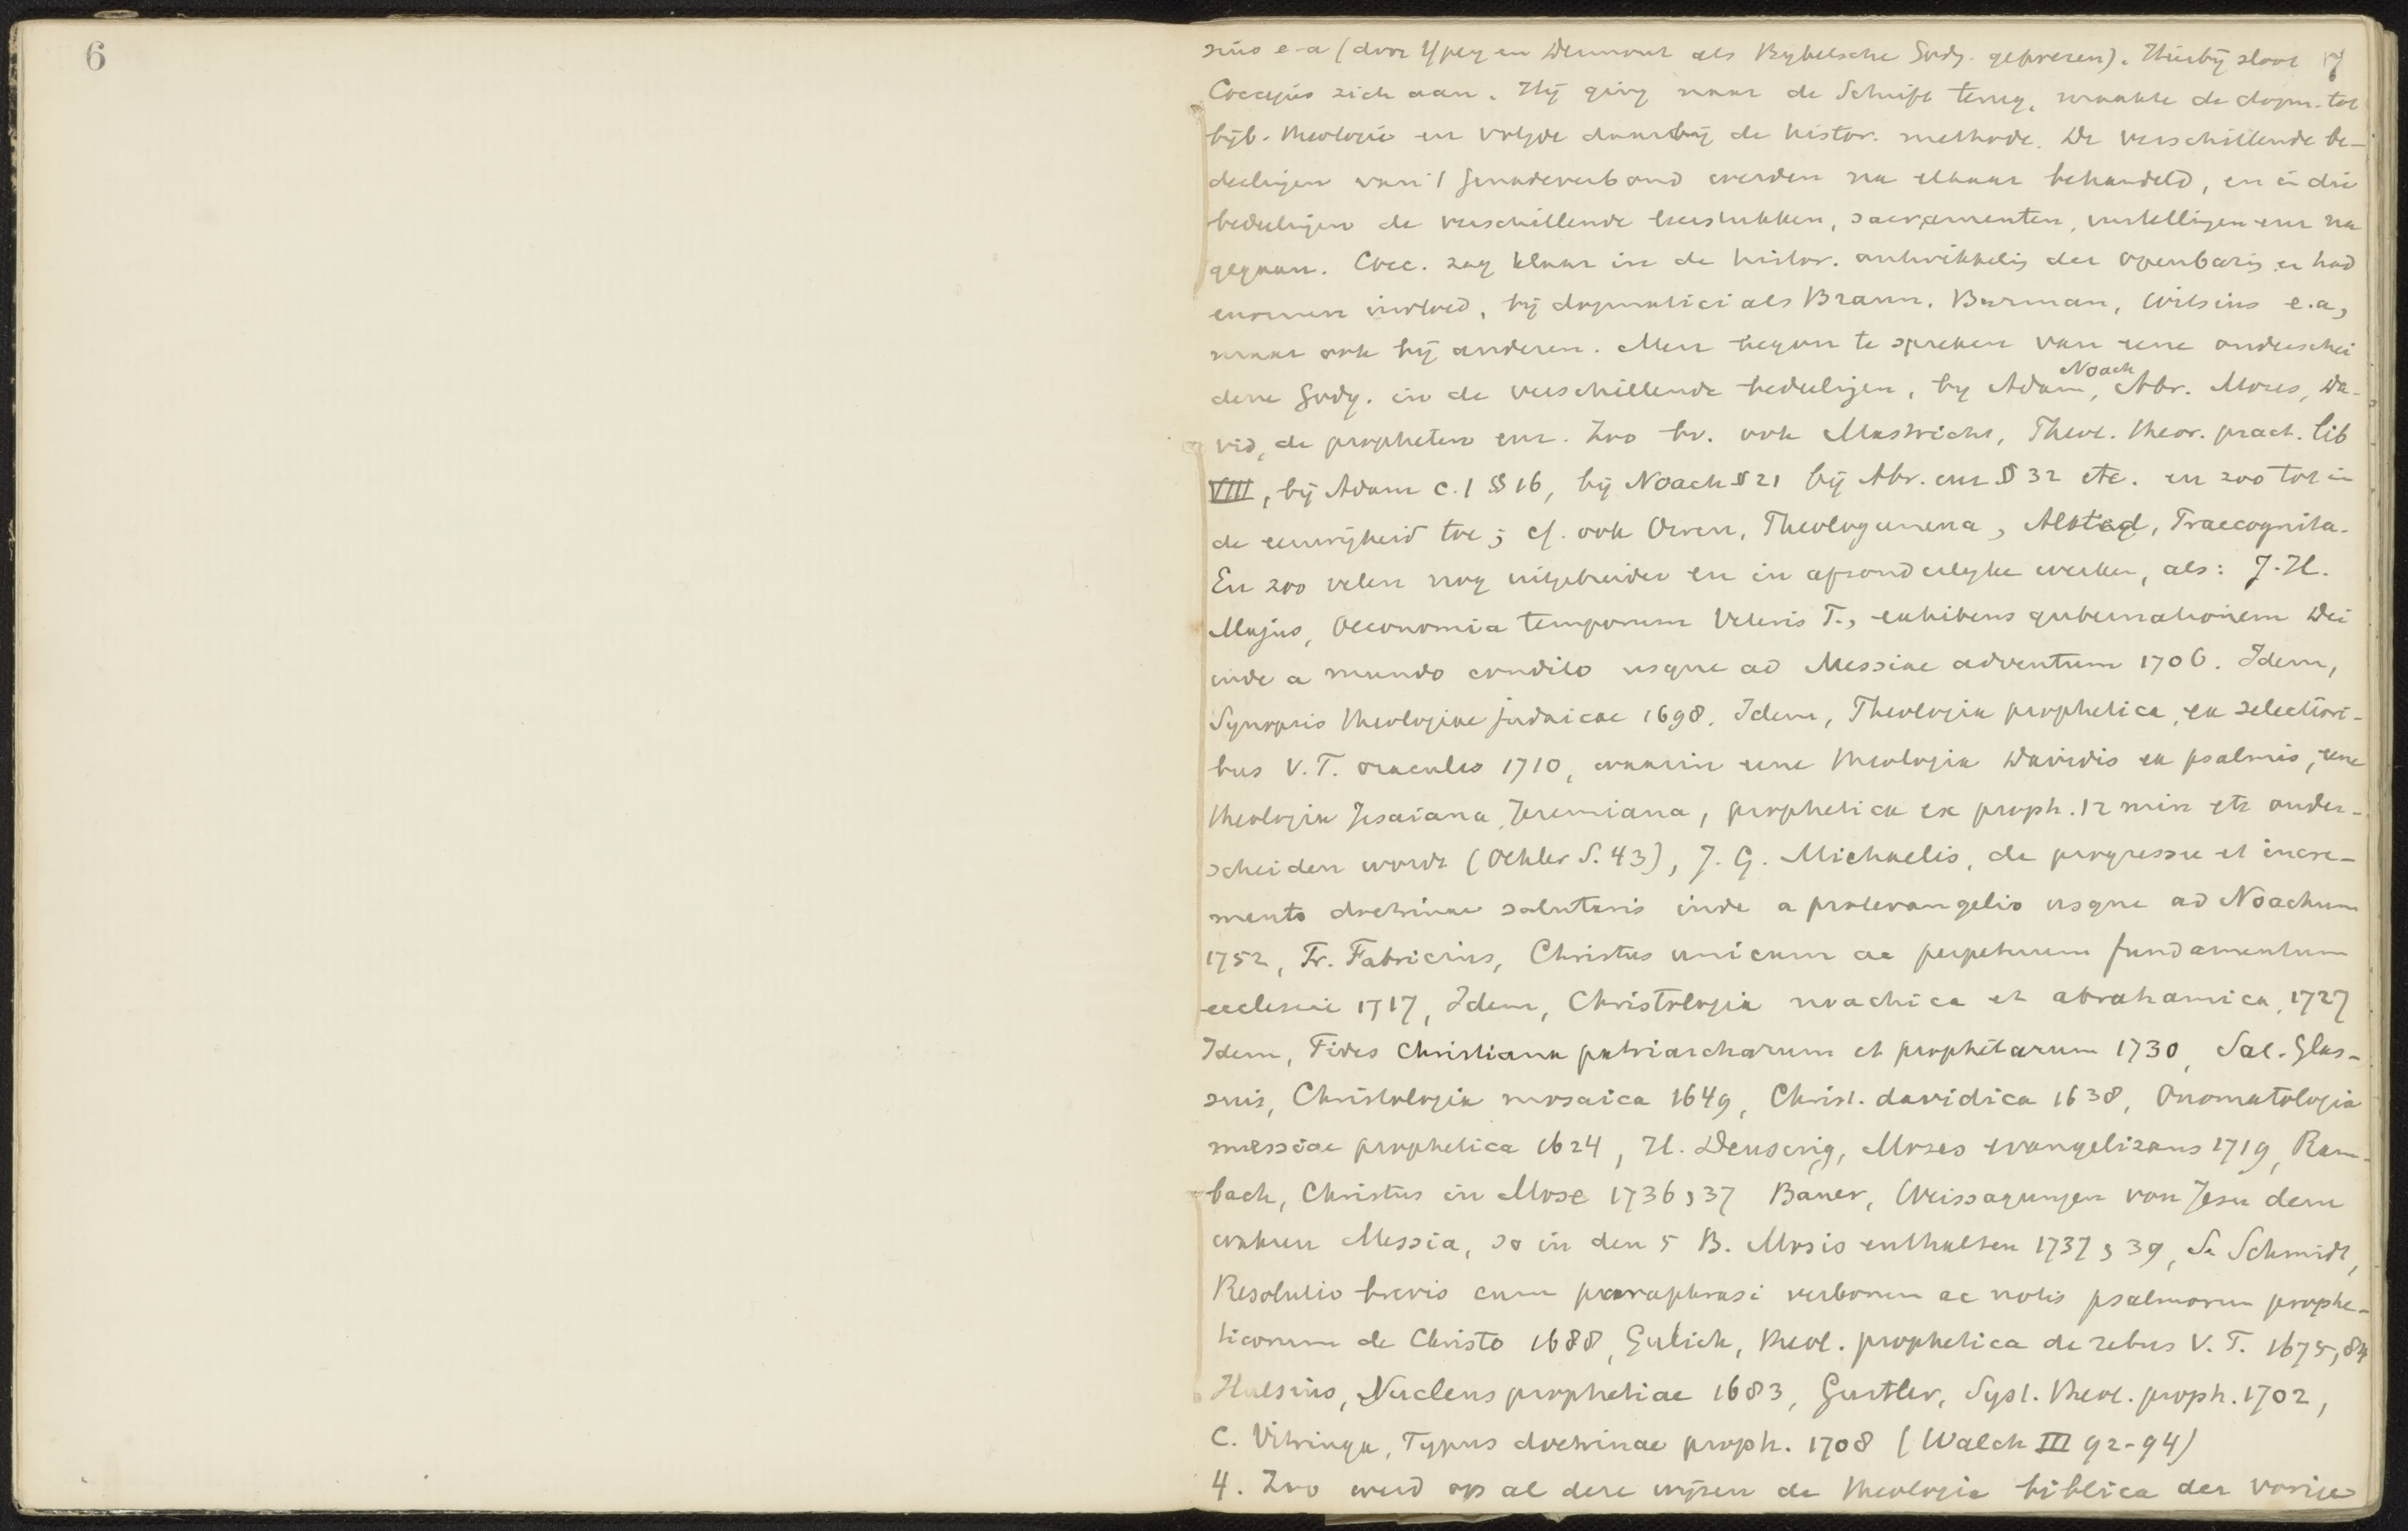 6
7
sius e.a (door Ypey en Dermout als Bybelsche Godg. geprezen). Hierbij sloot
Coccejus zich aan. Hij ging naar de Schrift terug, maakte de dogm. tot
bijb. theologie en volgde daarbij de histor. methode. De verschillende be-
deelingen van 't genadeverbond werden na elkaar behandeld, en in die
bedeelingen de verschillende leerstukken, sacramenten, instellingen enz na
gegaan. Cocc. zag klaar in de histor. ontwikkelig der openbarig en had
enormen invloed, bij dogmatici als Braun, Burman, Witsius e.a,
maar ook bij anderen. Men begon te spreken van eene onderschei
dene Godg. in de verschillende bedeelijgen, by Adam, Noach, Abr. Mozes, Da-
vid, de propheten enz. Zoo bv. ook Mastricht, Theol. theor. pract. lib
VIII, bij Adam c.1 § 16, bij Noach § 21 bij Abr. enz § 32 etc. en zoo tot in
de eeuwigheid toe; cf. ook Owen, Theologumena, Alsted, Praecognita.
En zoo velen nog uitgebreider en in afzonderlyke werken, als: J. H.
Majus, Oeconomia temporum Veteris T., exhibens gubernationem Dei
inde a mundo condito usque ad Messiae adventum 1706. Idem,
Synopsis theologiae judaicae 1698. Idem, Theologia prophetica, ex selectiori-
bus V. T. oraculis 1710, waarin eene theologia Davidis ex psalmis, eene
theologia Jesaiana, Jeremiana, prophetica ex proph. 12 min etc onder-
scheiden wordt (Oehler S. 43), J. G. Michaelis, de progressu et incre-
mento doctrinae salutaris inde a protevangelio usque ad Noachum
1752, Fr. Fabricius, Christus unicum ac perpetuum fundamentum
ecclesiae 1717, Idem, Christologia noachica et abrahamica, 1727
Idem, Fides Christiana patriarcharum et prophetarum 1730, Sal. Glas-
sius, Christologia mosaica 1649, Christ. davidica 1638, Onomatologia
messiae prophetica 1624, H. Deusing, Moses evangelizans 1719, Ram-
bach, Christus in Mose 1736, 37 Bauer, Weissagungen von Jesu dem
wahren Messia, so in den 5 B. Mosis enthalten 1737, 39, Se Schmidt,
Resolutio brevis cum paraphrasi verborum ac notis psalmorum prophe-
ticorum de Christo 1688, Gulich, theol. prophetica de rebus V. T. 1675, 84
Hulsius, Nucleus prophetiae 1683, Gurtler, Syst. theol. proph. 1702,
C. Vitringa, Typus doctrinae proph. 1708 (Walch III 92-94)
4. Zoo werd op al deze wijzen de theologia biblica der vorige